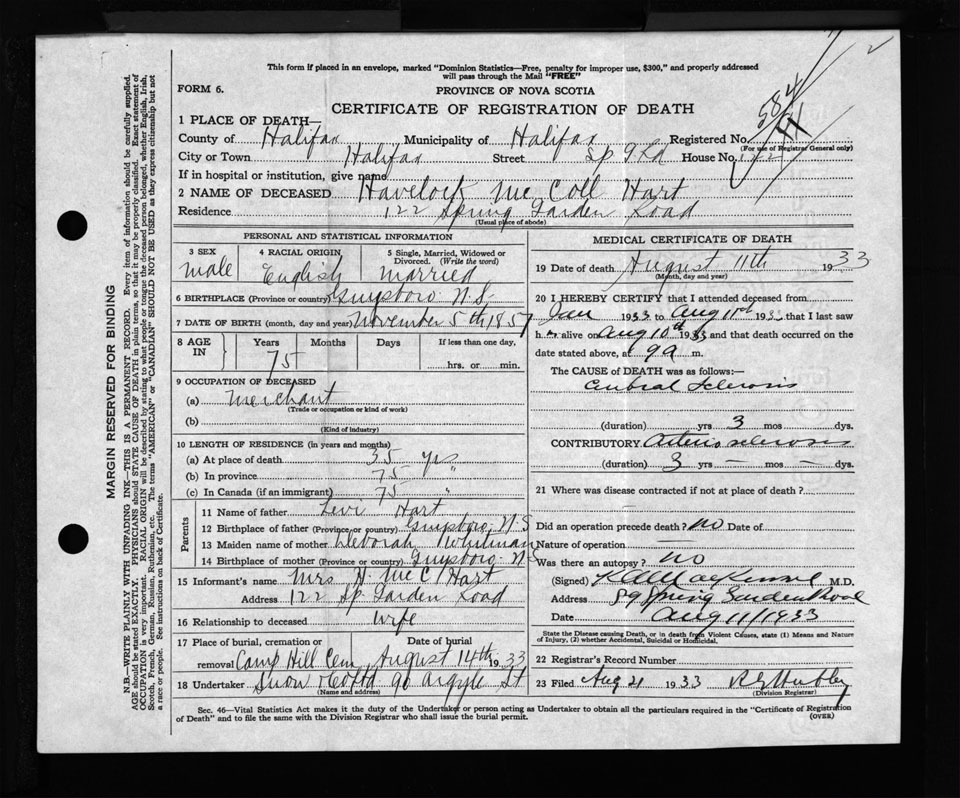 This form if placed in an envelope, marked "Dominion Statistics—Free, penalty for improper use, $300," and properly addressed
will pass through the Mail "FREE"
FORM 6.
PROVINCE OF NOVA SCOTIA
CERTIFICATE OF REGISTRATION OF DEATH
1 PLACE OF DEATH—
County of Halifax Municipality of Halifax Registered No.
(For use of Registrar General only)
City or Town Halifax Street Sp G Rd House No. 122
If in hospital or institution, give name
2 NAME OF DECEASED Havelock McColl Hart
Residence 122 Spring Garden Road
(Usual place of abode)
PERSONAL AND STATISTICAL INFORMATION
3 SEX Male
4 RACIAL ORIGIN English
5 Single, Married, Widowed or Divorced. (Write the word) Married
6 BIRTHPLACE (Province or country) Guysboro N.S.
7 DATE OF BIRTH (month, day and year) November 5th 1857
8 AGE IN Years 75 Months Days If less than one day, hrs. or min.
9 OCCUPATION OF DECEASED
(a) Merchant
(Trade or occupation or kind of work)
(b)
(Kind of industry)
10 LENGTH OF RESIDENCE (in years and months)
(a) At place of death 35 yrs
(b) In province 75 "
(c) In Canada (if an immigrant) 75 "
Parents
11 Name of father Levi Hart
12 Birthplace of father (Province or country) Guysboro, N.S
13 Maiden name of mother Deborah Whitman
14 Birthplace of mother (Province or country) Guysboro N.S
15 Informant's name Mrs H. McC Hart
Address 122 Sp. Garden Road
16 Relationship to deceased wife
17 Place of burial, cremation or removal Camp Hill Cem Date of burial August 14th 1933
18 Undertaker Snow & Co Ltd 90 Argyle St
(Name and address)
MEDICAL CERTIFICATE OF DEATH
19 Date of death August 11th 1933
(Month, day and year)
20 I HEREBY CERTIFY that I attended deceased from
Jan 1933 to Aug 11 1933 that I last saw
h alive on Aug 10th 1933 and that death occurred on the
date stated above, at 9 a m.
The CAUSE of DEATH was as follows:—
Cerebral Sclerosis
(duration) yrs 3 mos dys.
CONTRIBUTORY Arterio sclerosis
(duration) 3 yrs — mos — dys.
21 Where was disease contracted if not at place of death?
Did an operation precede death? no Date of
Nature of operation —
Was there an autopsy? no
(Signed) MacKenzie M.D.
Address 89 Spring Garden Road
Date Aug 11/1933
State the Disease causing Death, or in death from Violent Causes, state (1) Means and Nature
of Injury, (2) whether Accidental, Suicidal or Homicidal.
22 Registrar's Record Number
23 Filed Aug 21 1933
(Division Registrar)
Sec. 46—Vital Statistics Act makes it the duty of the Undertaker or person acting as Undertaker to obtain all the particulars required in the "Certificate of Registration
of Death" and to file the same with the Division Registrar who shall issue the burial permit.
(OVER)
MARGIN RESERVED FOR BINDING
N.B.—WRITE PLAINLY WITH UNFADING INK—THIS IS A PERMANENT RECORD. Every item of information should be carefully supplied.
AGE should be stated EXACTLY. PHYSICIANS should STATE CAUSE OF DEATH in plain terms, so that it may be properly classified. Exact statement of
OCCUPATION is very important. RACIAL ORIGIN will be described by stating to what people or tongue the deceased person belonged, whether English, Irish,
Scotch, French, German, Russian, Ruthenian, etc. The terms "AMERICAN" or "CANADIAN" SHOULD NOT BE USED as they express citizenship but not
a race or people. See instructions on back of Certificate.